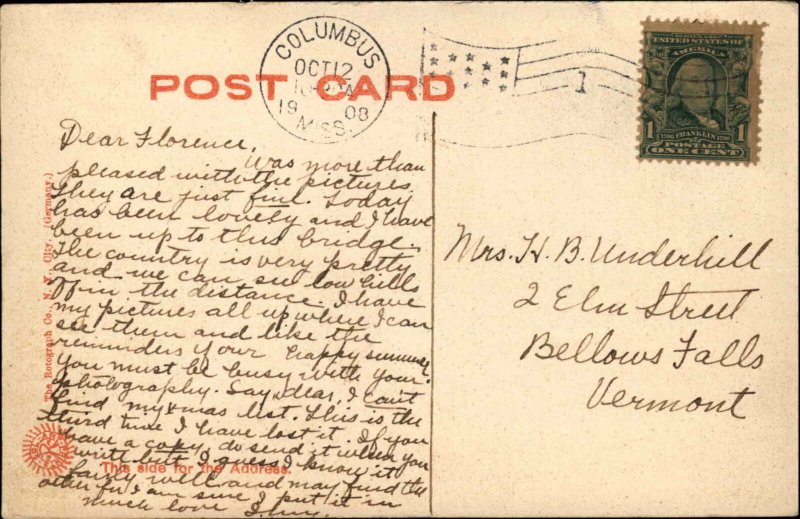 POST CARD
COLUMBUS
OCT 12
19 08
MISS.
1
UNITED STATES OF
AMERICA
1706 FRANKLIN 1790
1 1
POSTAGE
ONE CENT
Dear Florence,
Was more than
pleased with the pictures.
They are just fine. Today
has been lovely and I have
been up to this bridge.
The country is very pretty
and we can see low hills
off in the distance. I have
my pictures all up where I can
see them and like the
reminders of our happy summer.
You must be busy with your
photography. Say, dear, I can't
find my xmas list. This is the
third time I have lost it. If you
have a copy, do send it when you
write but I guess I know it
fairly well and may find the
other for I am sure I put it in
Much love
The Rotograph Co., N. Y. City. (Germany.)
This side for the Address.
Mrs. H. B. Underhill
2 Elm Street
Bellows Falls
Vermont